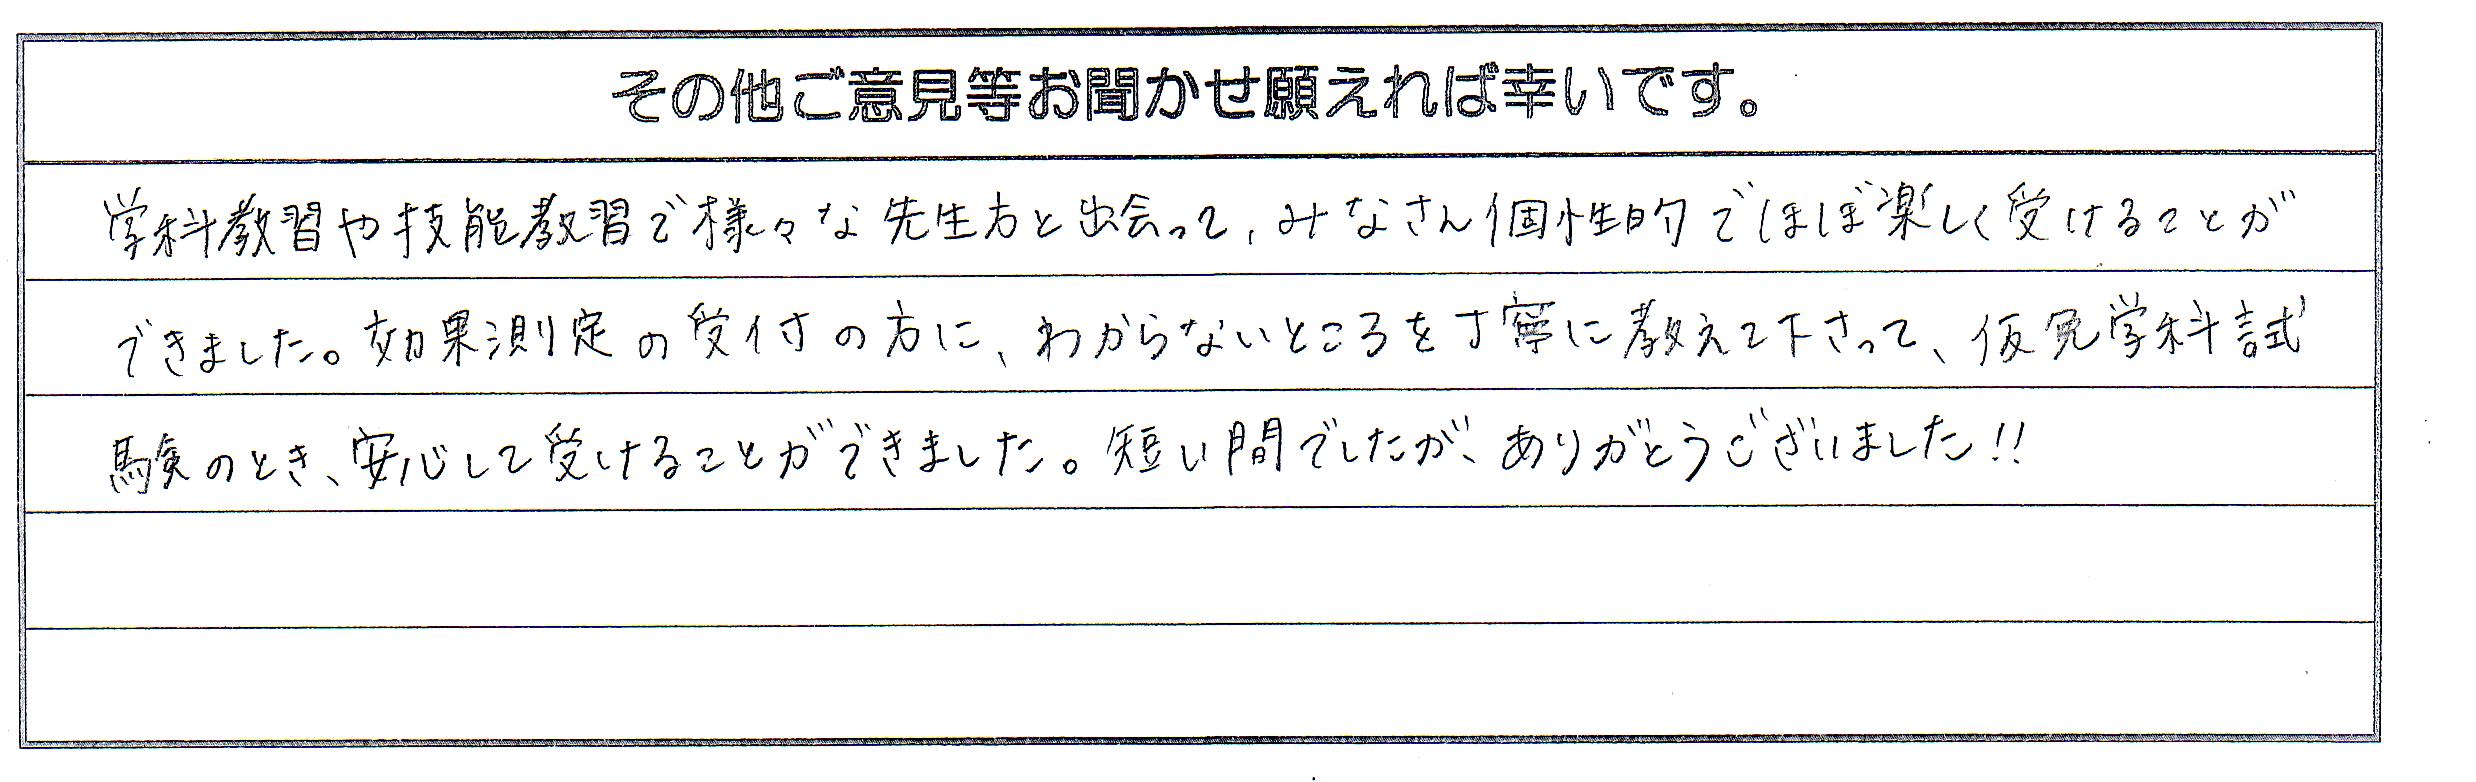 その他ご意見等お聞かせ願えれば幸いです。
学科教習や技能教習で様々な先生方と出会って、みなさん個性的でほぼ楽しく受けることが
できました。効果測定の受付の方に、わからないところを丁寧に教えて下さって、仮免学科試
験のとき、安心して受けることができました。短い間でしたが、ありがとうございました!!